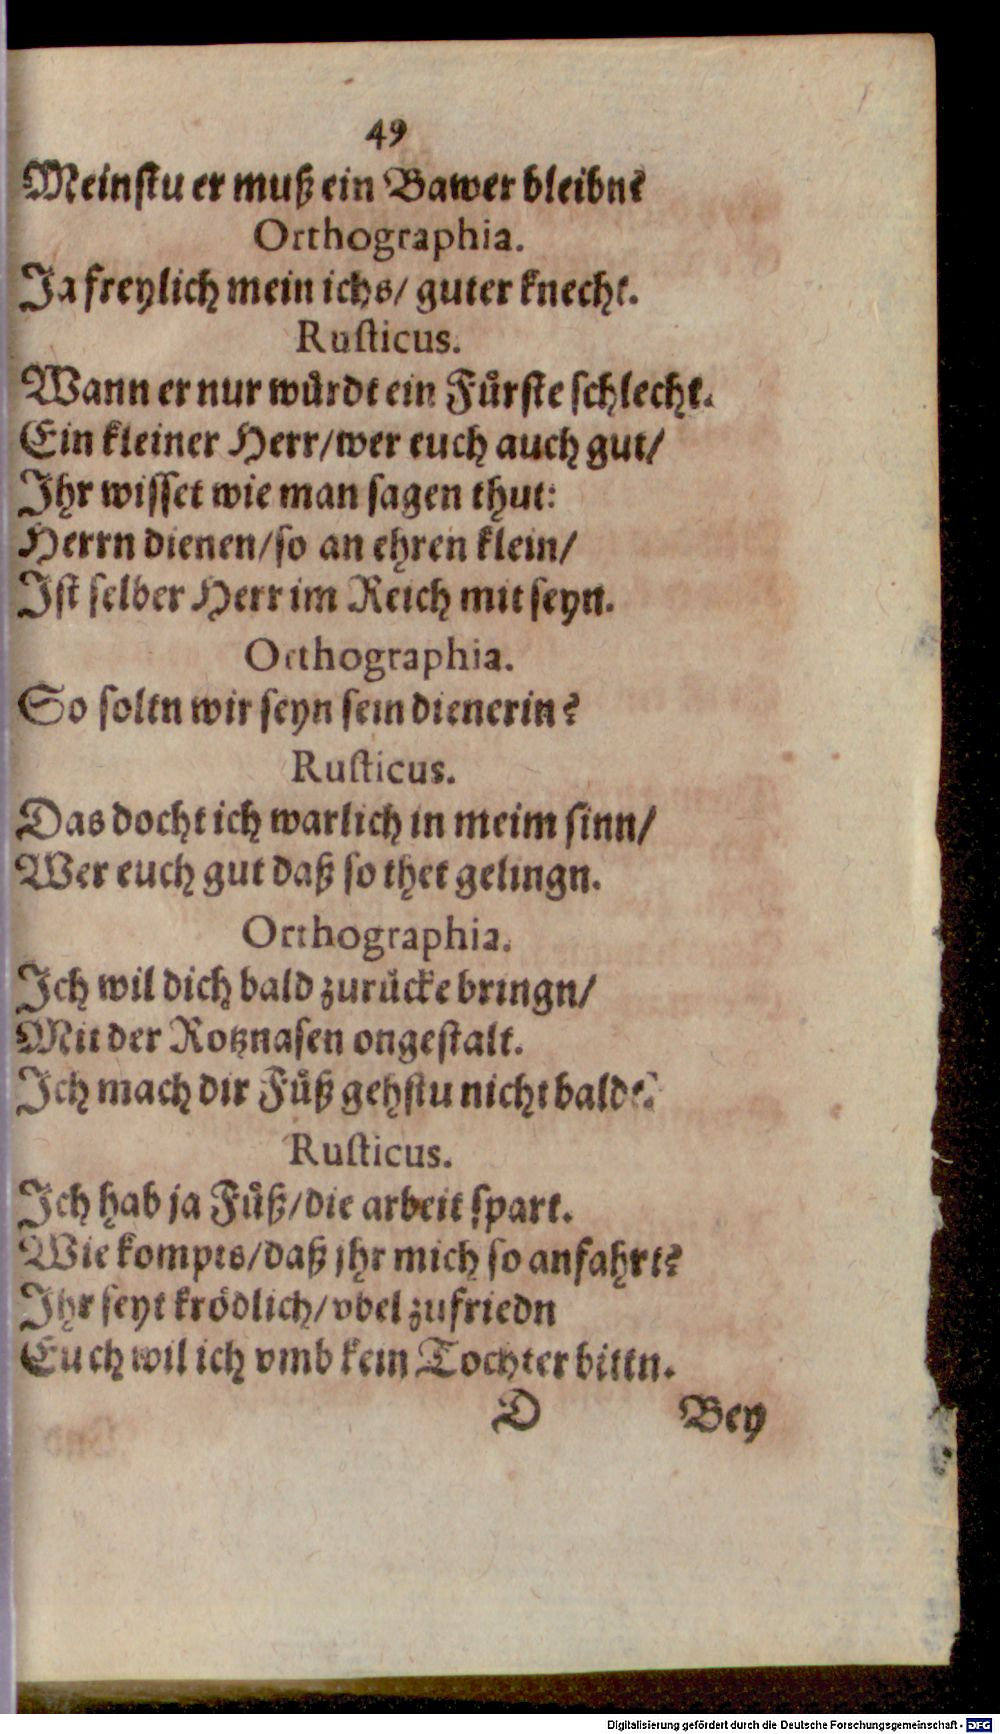 49
Meinstu er muß ein Bawer bleibn?
Orthographia.
Ja freylich mein ichs/ guter knecht.
Rusticus.
Wann er nur wůrdt ein Fůrste schlecht.
Ein kleiner Herr/wer euch auch gut/
Ihr wisset wie man sagen thut:
Herrn dienen/so an ehren klein/
Ist selber Herr im Reich mit seyn.
Orthographia.
So soltn wir seyn sein dienerin?
Rusticus.
Das docht ich warlich in meim sinn/
Wer euch gut daß so thet gelingn.
Orthographia.
Ich wil dich bald zurücke bringn/
Mit der Rotznasen ongestalt.
Ich mach dir Fůß gehstu nicht baldt.
Rusticus.
Ich hab ja Fůß/die arbeit spart.
Wie kompts/daß jhr mich so anfahrt?
Ihr seyt krödlich/vbel zufriedn
Euch wil ich vmb kein Tochter bittn.
D Bey
Digitalisierung gefördert durch die Deutsche Forschungsgemeinschaft - DFG